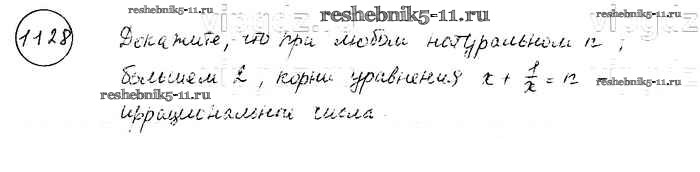 reshebnik5-11.ru
1128 Докажите, что при любом натуральном n,
reshebnik5-11.ru
большем 2, корни уравнения x + 1/x = n –
reshebnik5-11.ru
иррациональные числа.
reshebnik5-11.ru